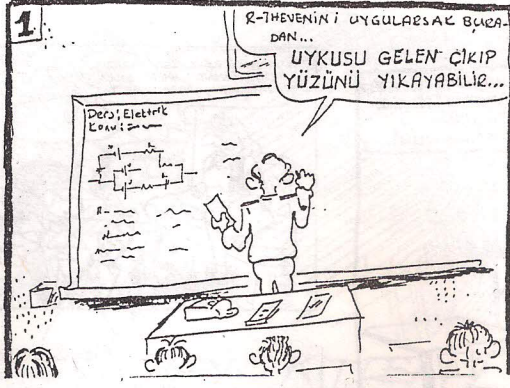 1
R-THEVENİNİ UYGULARSAK BURA-
DAN...
UYKUSU GELEN ÇIKIP
YÜZÜNÜ YIKAYABİLİR...
Ders: Elektrik
Konu:
R-